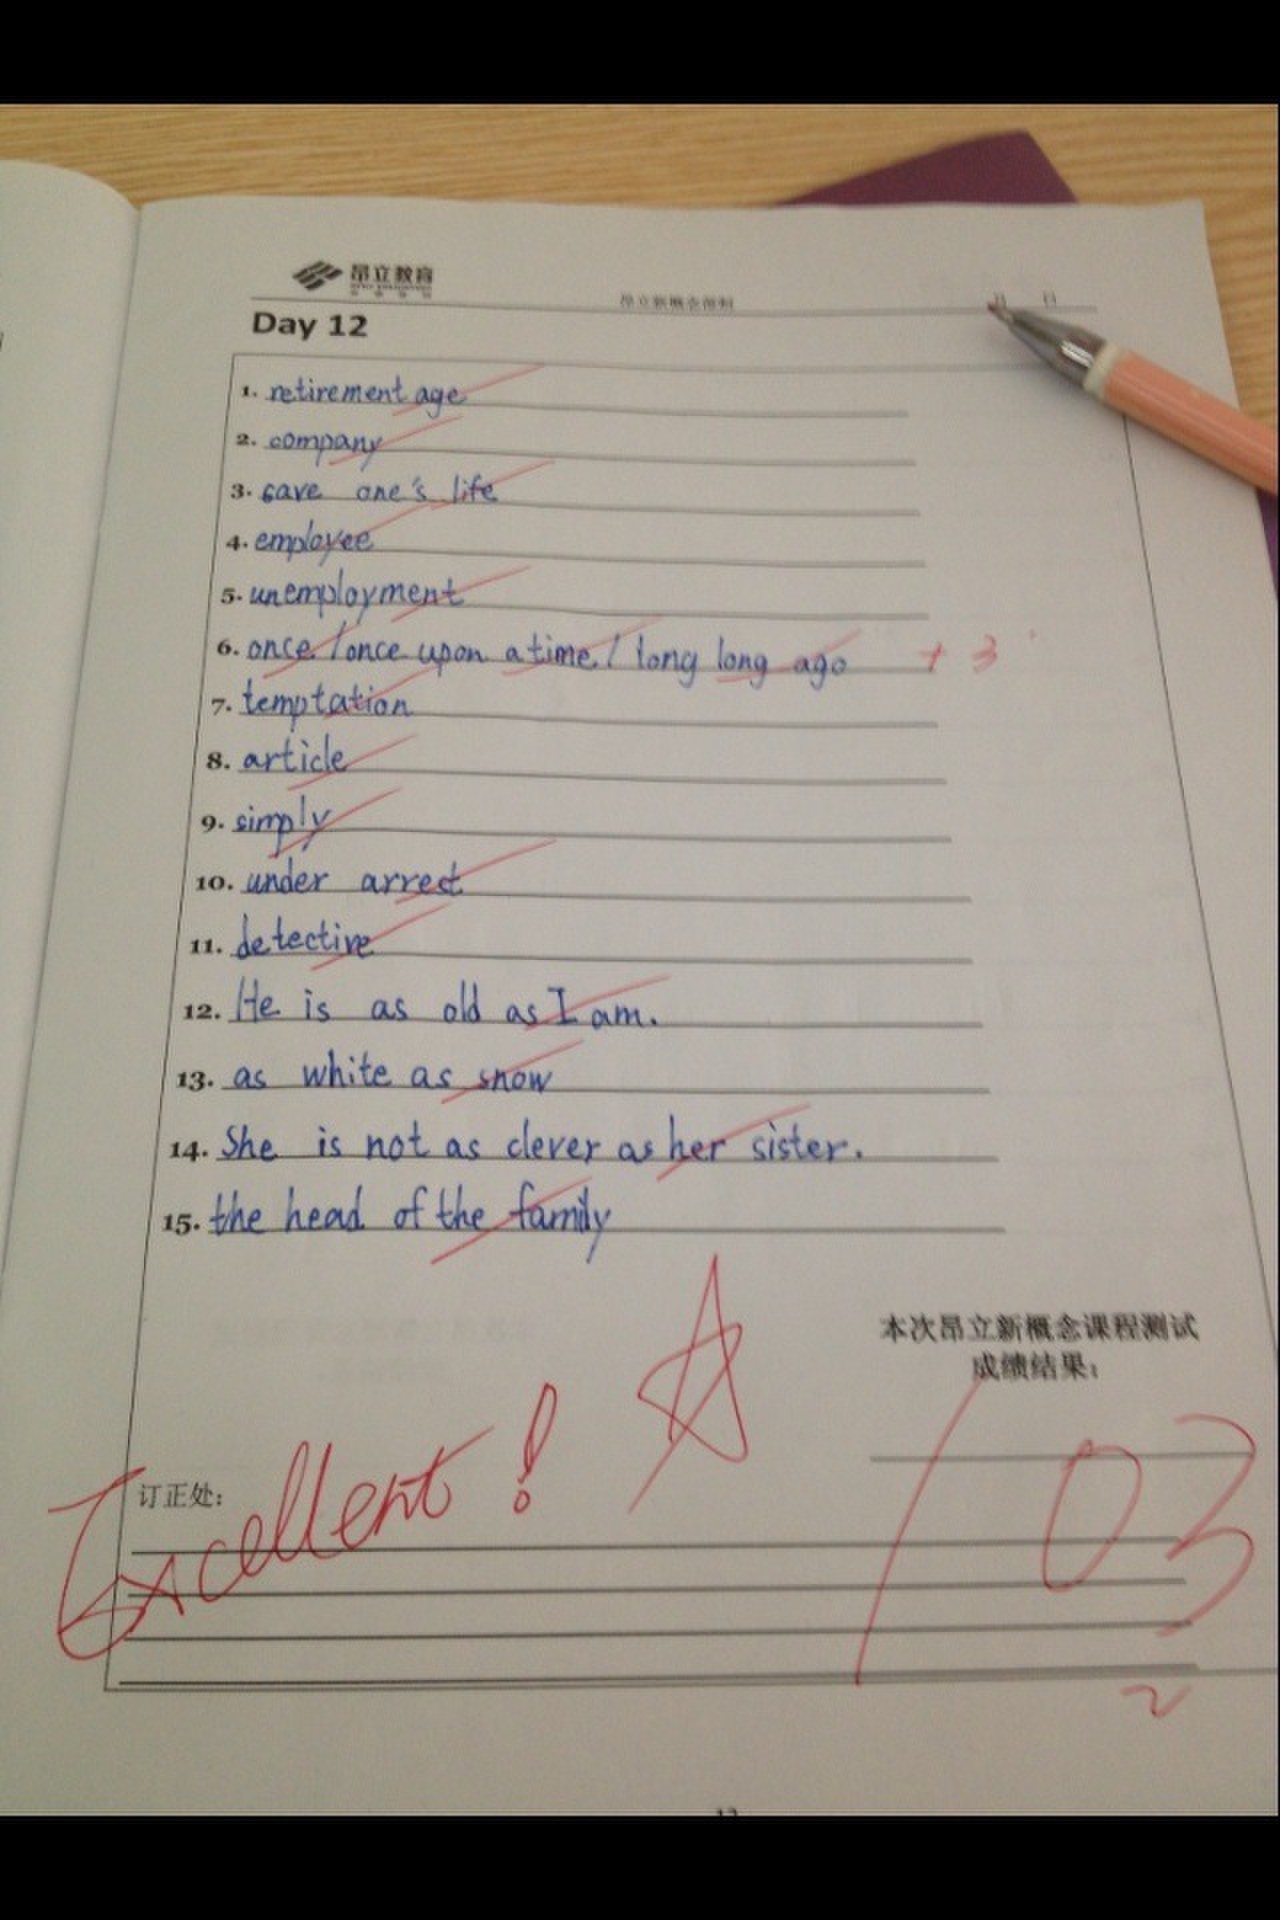 昂立教育
昂立新概念
月 日
Day 12
1. retirement age
2. company
3. save one's life
4. employee
5. unemployment
6. once / once upon a time / long long ago + 3
7. temptation
8. article
9. simply
10. under arrest
11. detective
12. He is as old as I am.
13. as white as snow
14. She is not as clever as her sister.
15. the head of the family
本次昂立新概念课程测试
成绩结果：
103
订正处：
Excellent!